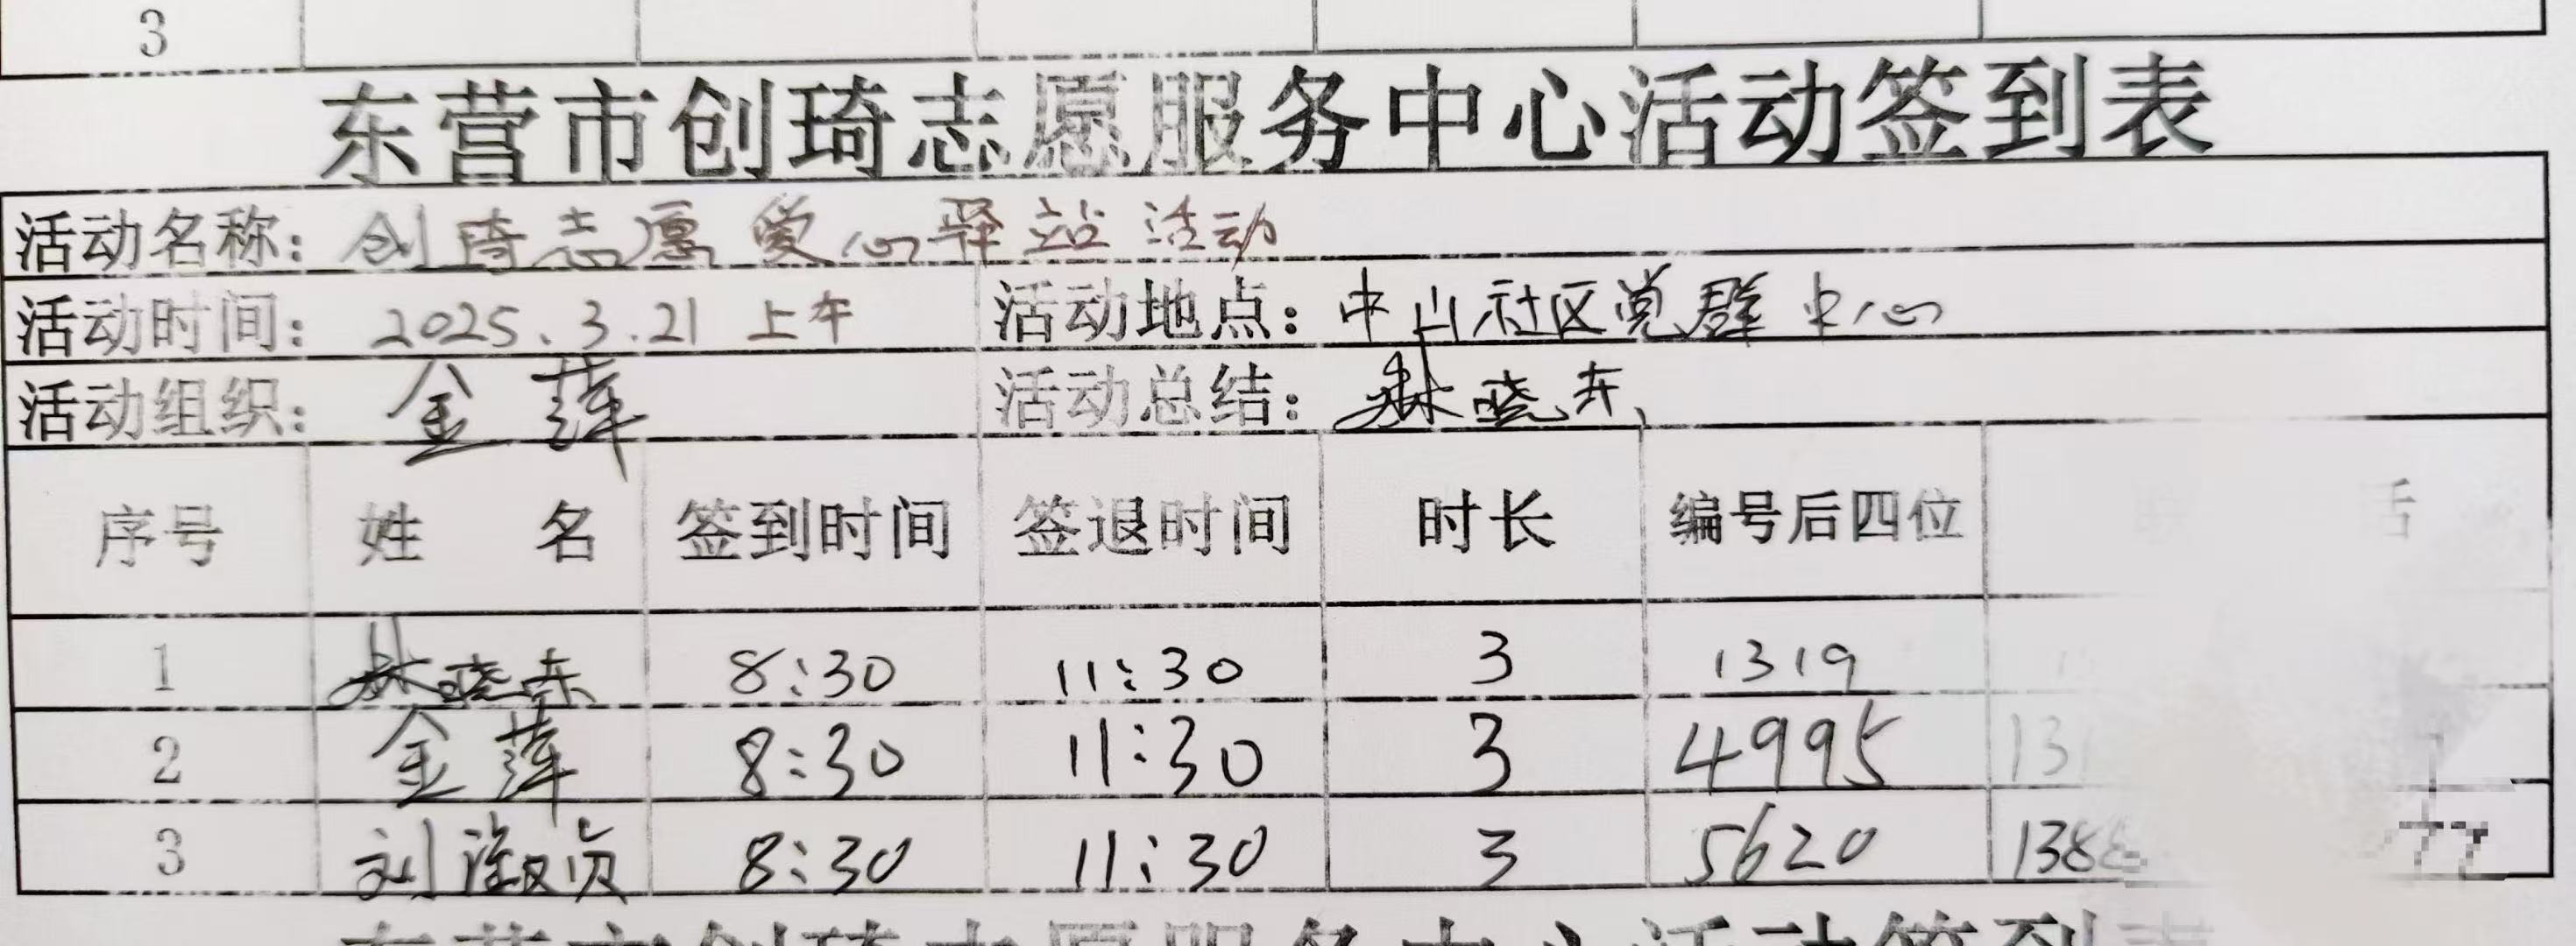 3
东营市创琦志愿服务中心活动签到表
活动名称：创琦志愿爱心驿站活动
活动时间：2025.3.21 上午 活动地点：中山社区党群中心
活动组织：金萍 活动总结：林晓东
序号 姓名 签到时间 签退时间 时长 编号后四位 话
1 林晓东 8:30 11:30 3 1319
2 金萍 8:30 11:30 3 4995 131
3 刘淑贞 8:30 11:30 3 5620 138
东营市创琦志愿服务中心活动签到表